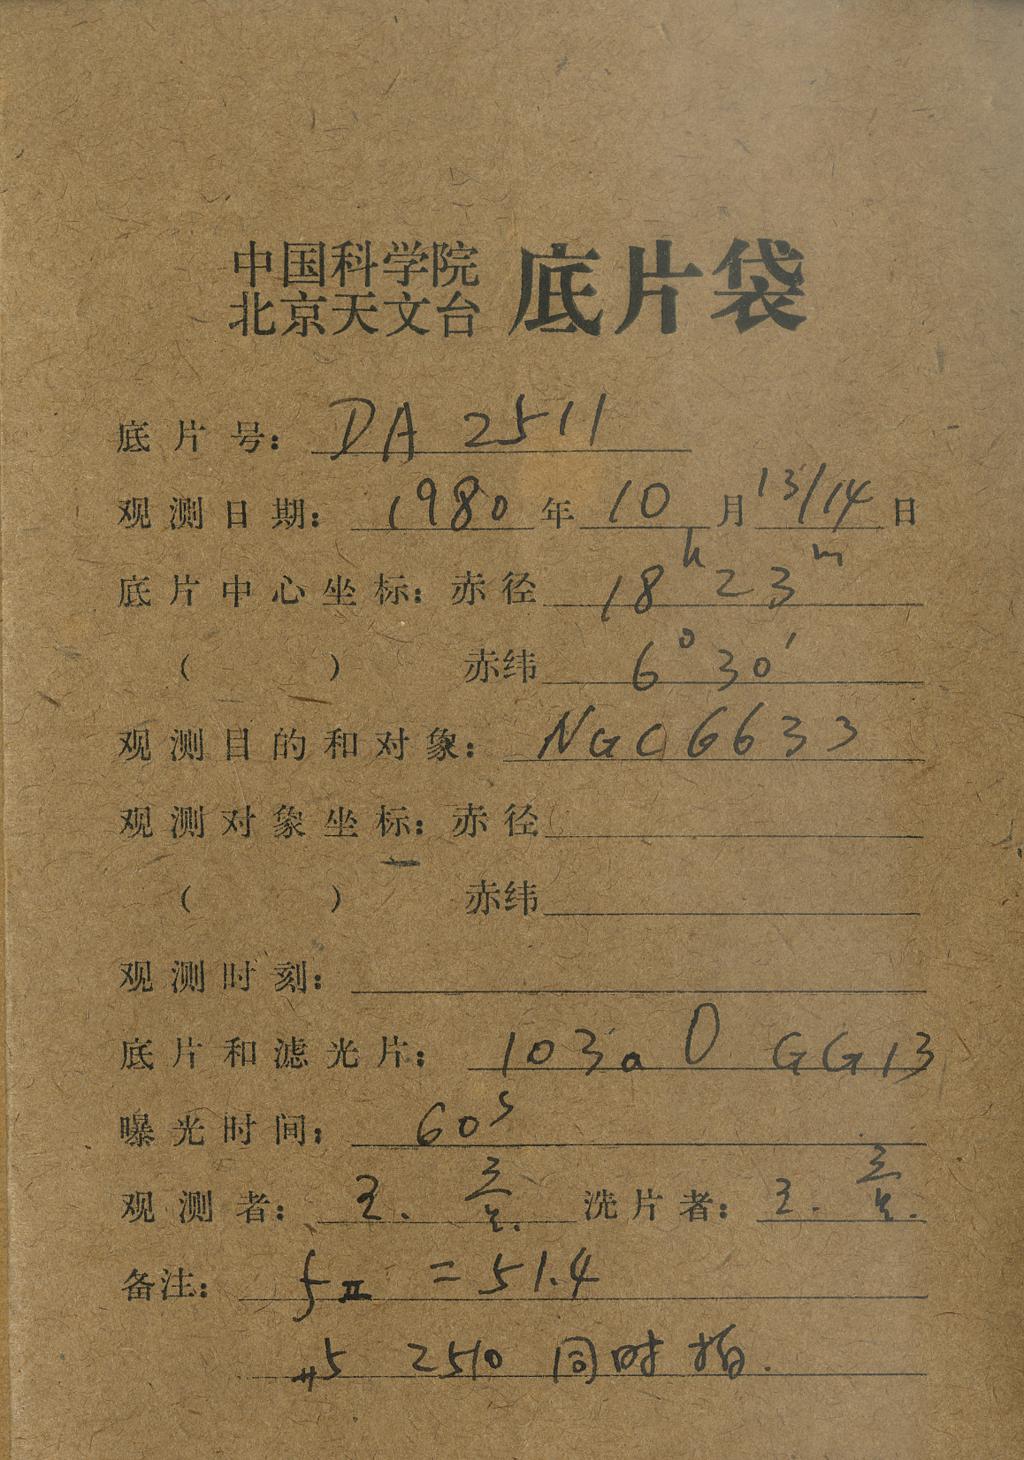 中国科学院
北京天文台 底片袋
底片号: DA 2511
观测日期: 1980 年 10 月 13/14 日
底片中心坐标: 赤径 18h 23m
( ) 赤纬 6° 30′
观测目的和对象: NGC 6633
观测对象坐标: 赤径
( ) 赤纬
观测时刻:
底片和滤光片: 103a O GG13
曝光时间: 60s
观测者: 王. 洗片者: 王.
备注: f II = 51.4
2510 同时拍.